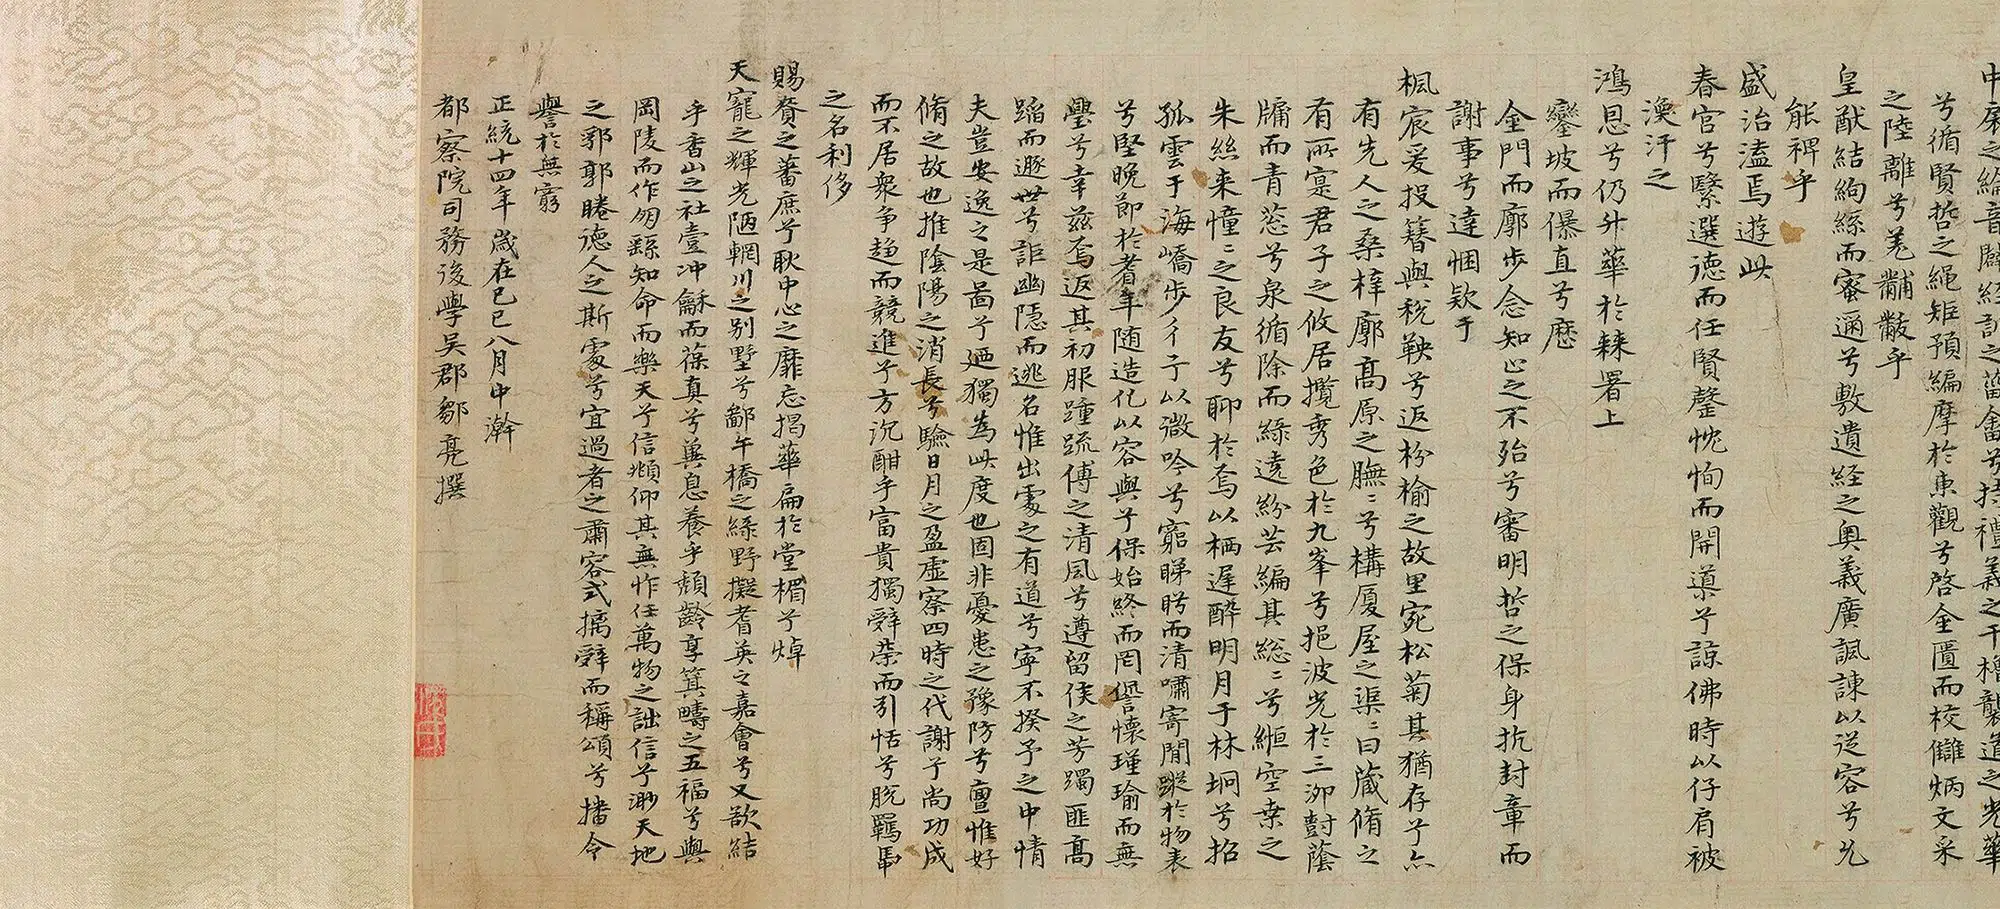 中宸之綸音闢經訓之菑畬兮持禮義之干櫓襲道之光華
兮循賢哲之繩矩預編摩於東觀兮啓金匱而校讎炳文采
之陸離兮羌黼黻乎
皇猷結絇絲而蜜邇兮敷遺經之奧義廣諷諫以從容兮允
能裨乎
盛治溘焉遊此
春官兮繄選德而任賢罄忱恂而開導兮諒佛時以仔肩被
渙汗之
鴻恩兮仍升華於棘署上
鑾坡而儤直兮歷
金門而廓步念知止之不殆兮審明哲之保身抗封章而
謝事兮達悃欵于
楓宸爰投簪與稅鞅兮返枌榆之故里宛松菊其猶存兮亦
有先人之桑梓廓高原之膴〻兮構廈屋之渠〻曰藏脩之
有所寔君子之攸居攬秀色於九峯兮挹波光於三泖對蔭
牖而青蔥兮泉循除而綠遶紛芸編其總〻兮緪空桒之
朱絲来憧〻之良友兮聊於焉以栖遲酔明月于林坰兮招
孤雲于海嶠步彳亍以微吟兮窮睇眄而清嘯寄閒蹤於物表
兮堅晚節於耆年随造化以容與兮保始終而罔愆懷瑾瑜而無
舋兮幸茲焉返其初服踵疏傅之清風兮遵留侯之芳躅匪高
蹈而遯世兮詎幽隱而逃名惟出處之有道兮寧不揆予之中情
夫豈安逸之是啚兮廼獨為此度也固非憂患之豫防兮亶惟好
脩之故也推陰陽之消長兮驗日月之盈虛察四時之代謝兮尚功成
而不居衆爭趍而競進兮方沉酣乎富貴獨辭榮而引恬兮脫羈馽
之名利侈
賜賚之蕃庶兮耿中心之靡忘揭華扁於堂楣兮焯
天寵之輝光陋輞川之别墅兮鄙午橋之綠野擬耆英之嘉會兮又歆結
乎香山之社壹冲龢而葆真兮興息養乎頹齡享箕疇之五福兮與
岡陵而作朋繇知命而樂天兮信頫仰其無怍任萬物之詘信兮渺天地
之郛郭睠德人之斯處兮宜過者之肅容式摛辭而稱頌兮播令
譽於無窮
正統十四年歲在己巳八月中澣
都察院司務後學吴郡鄒亮撰